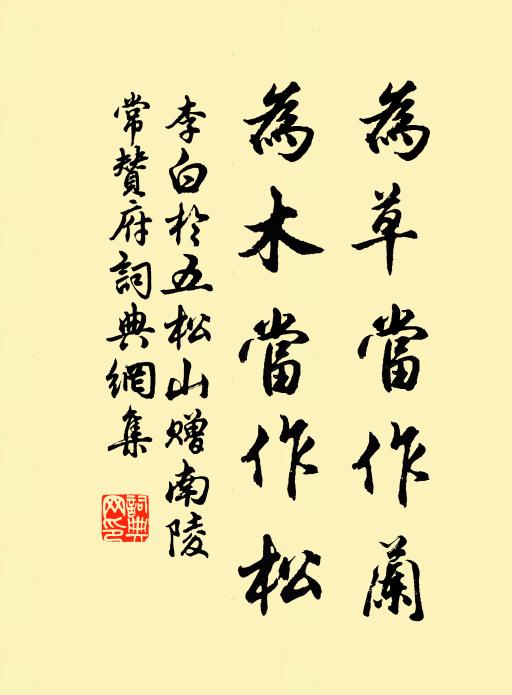 為草當作蘭
為木當作松
李白於五松山贈南陵
常贊府詞典網集
詞典
网印